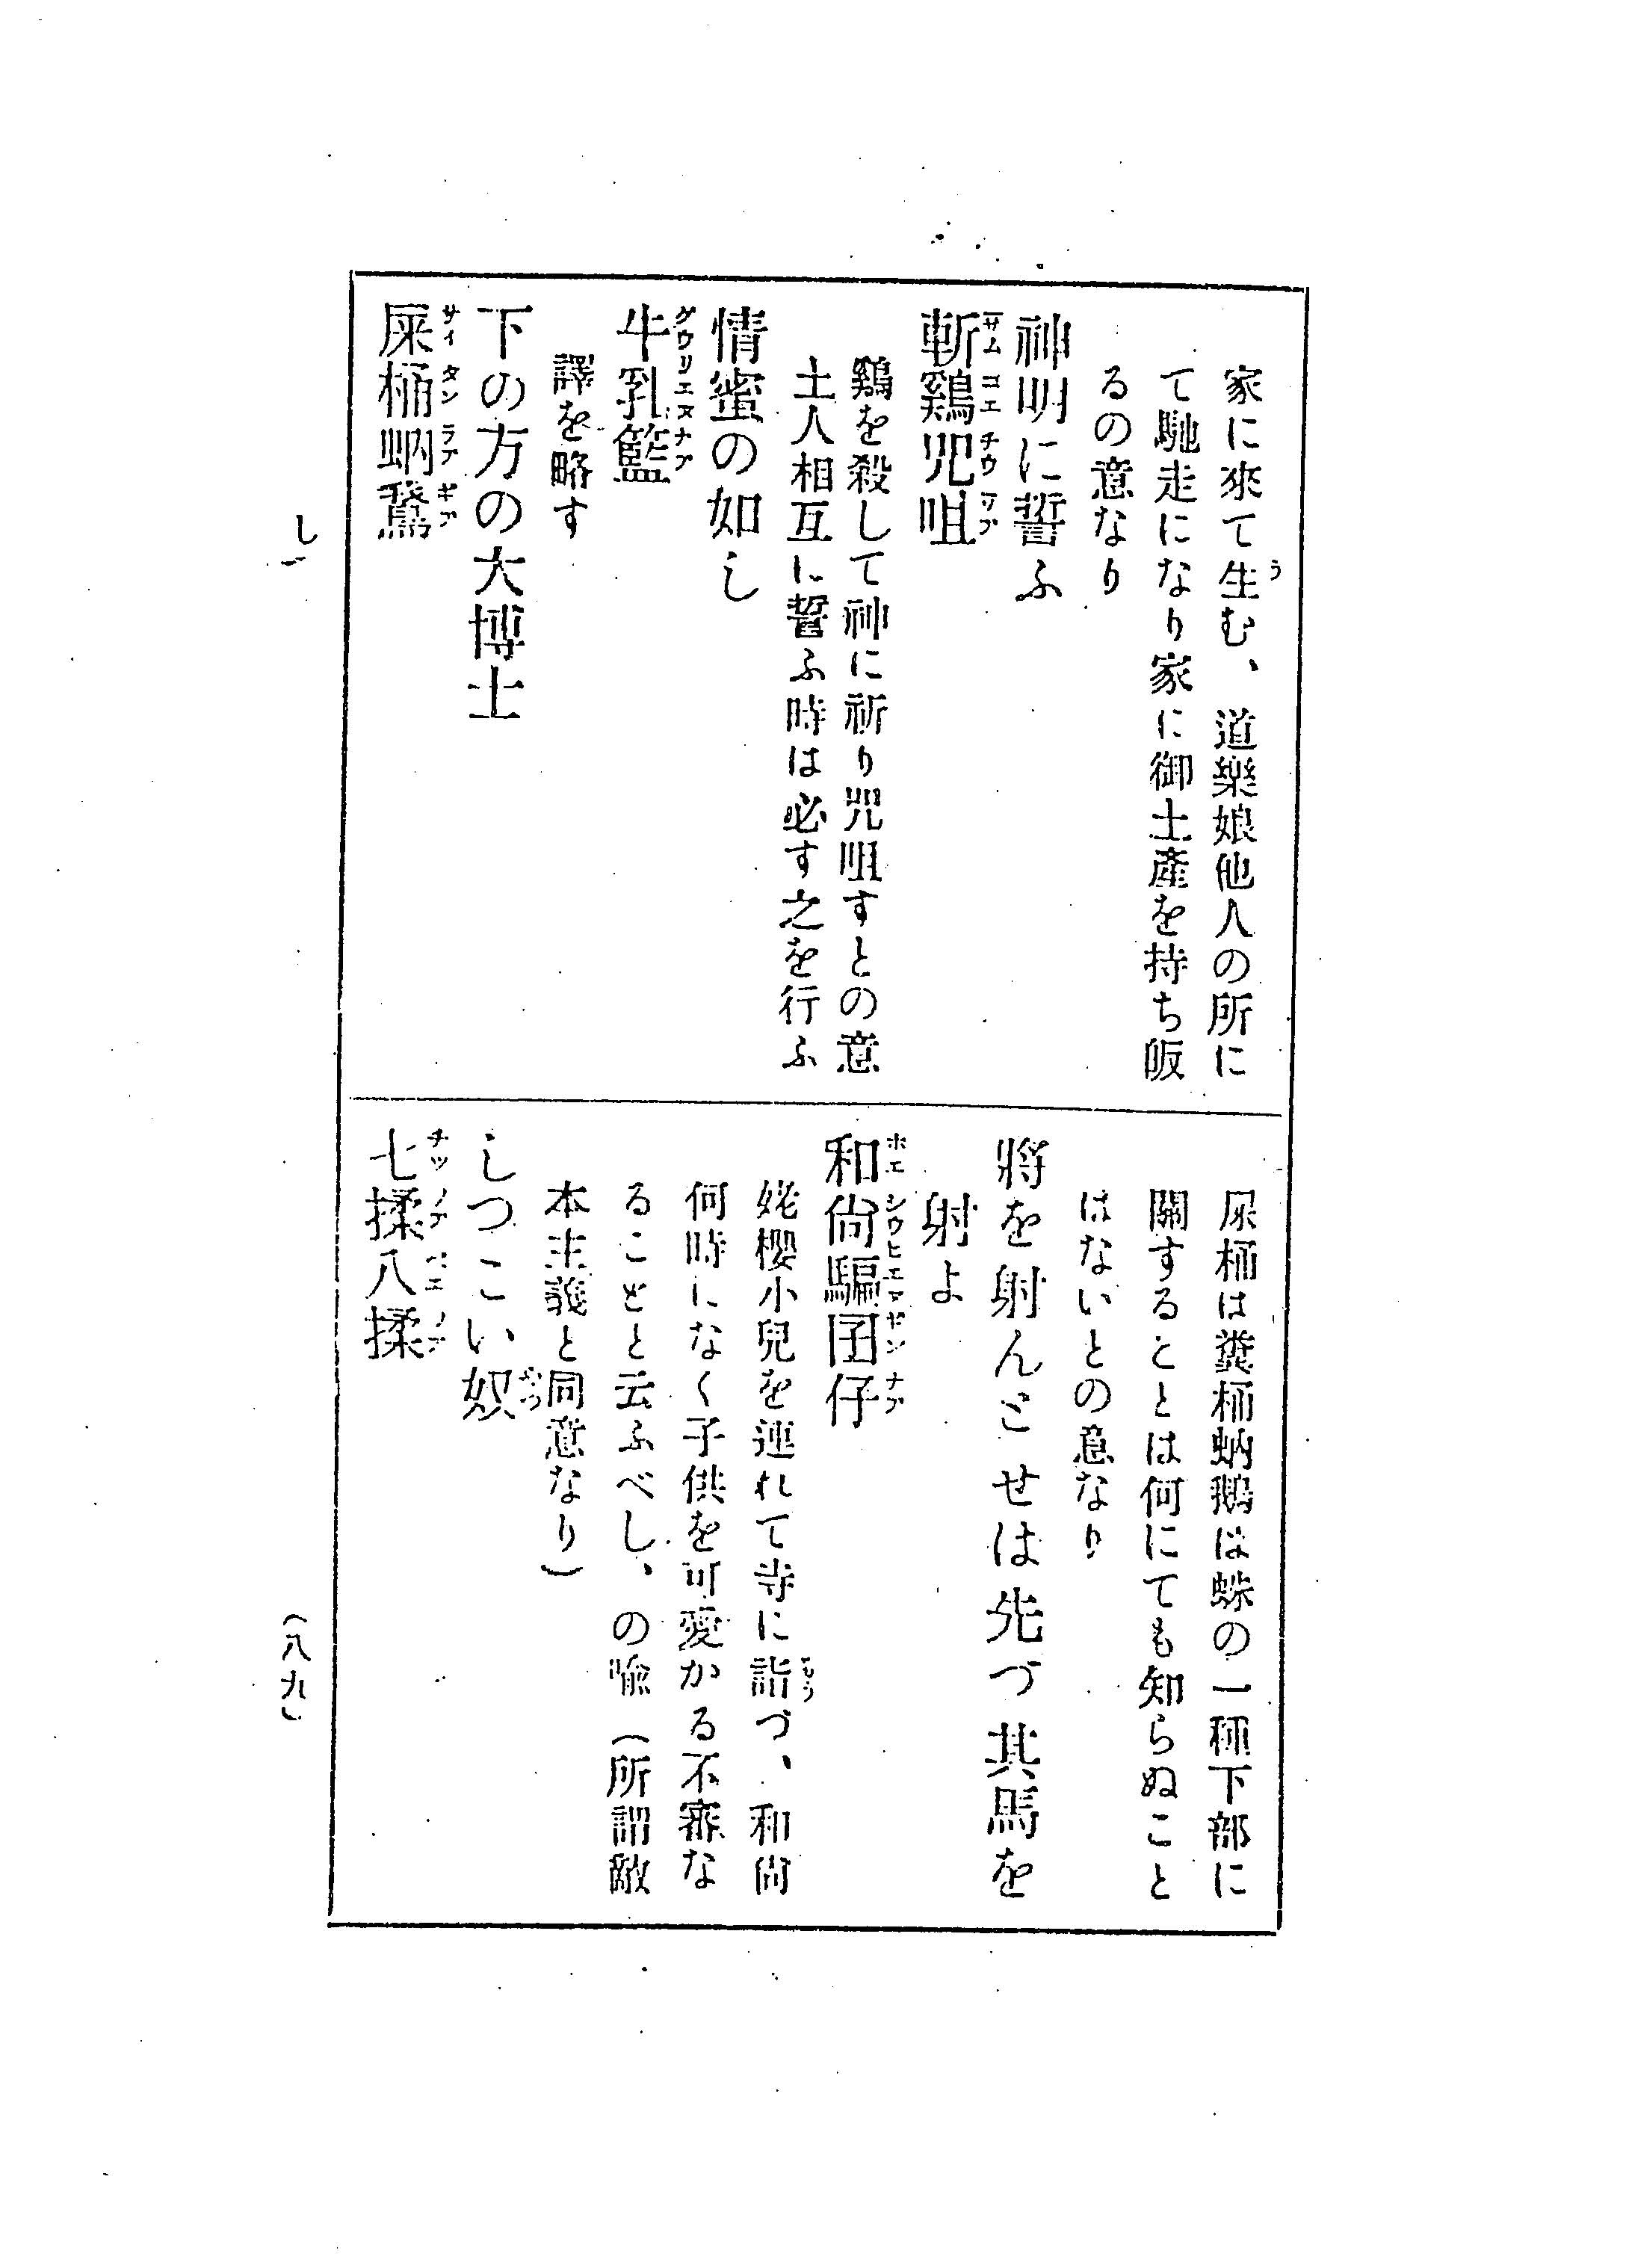 家に來て生む、道樂娘他人の所に
て馳走になり家に御土產を持ち皈
るの意なり
神明に誓ふ
斬鷄咒咀
鷄を殺して神に祈り咒咀すとの意
土人相互に誓ふ時は必す之を行ふ
情蜜の如し
牛乳籃
譯を略す
下の方の大博士
屎桶蚋鵞
屎桶は糞桶蚋鵝は蛛の一種下部に
關することは何にても知らぬこと
はないとの意なり
將を射んとせは先づ其馬を
射よ
和尙騙囝仔
姥櫻小兒を連れて寺に詣づ、和尙
何時になく子供を可愛かる不審な
ることと云ふべし、の喩(所謂敵
本主義と同意なり)
しつこい奴
七揉八揉
し
(八九)